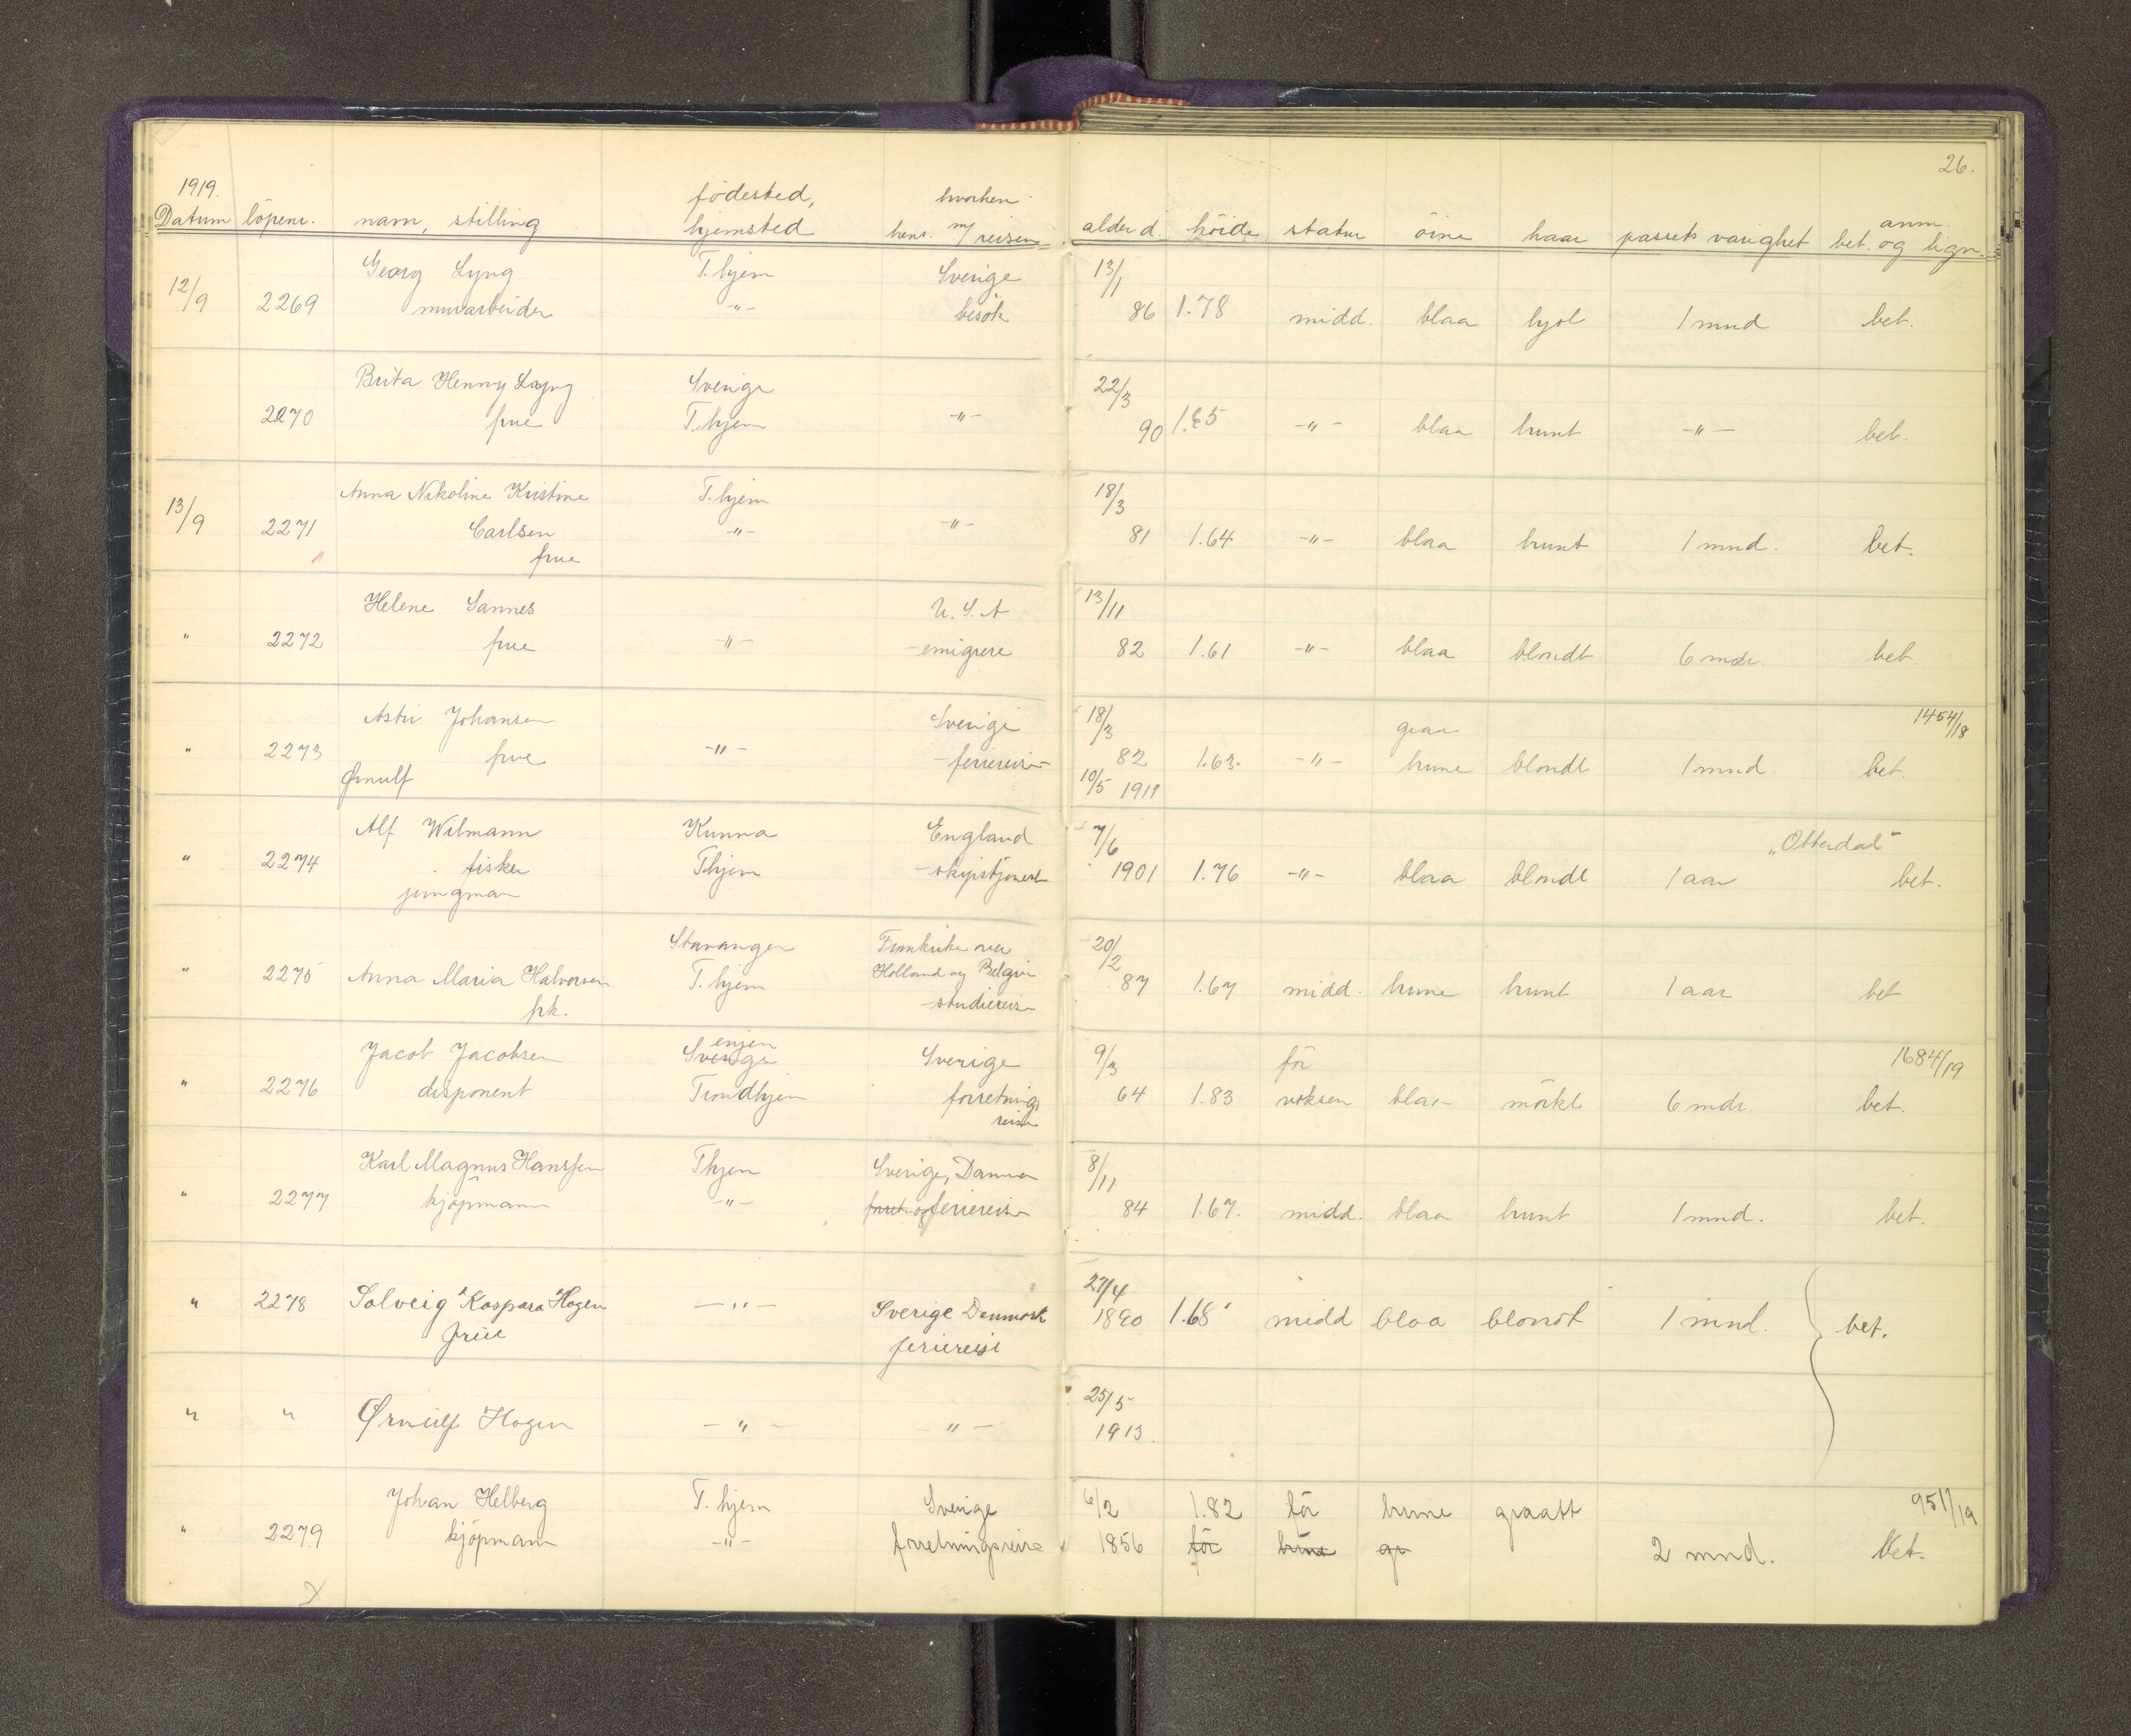 26.
1919.
Datum löpenr. nam, stilling fødested, hjemsted hvorhen hens. m/ reisen alder d. höide statur öine haar passets varighet bet. anm. og lign.
Georg Lyng T.hjem Sverige 13/1
12/9 2269 murarbeider -"- besök 86 1.78 midd. blaa lyst 1 mnd bet.
Brita Henny Lyng Sverige 22/3
2270 frue T.hjem -"- 90 1.65 -"- blaa brunt -"- bet.
Anna Nikoline Kristine T.hjem 18/3
13/9 2271 Carlsen -"- -"- 81 1.64 -"- blaa brunt 1 mnd. bet.
frue
Helene Sannes U.S.A 13/11
" 2272 frue -"- emigrere 82 1.61 -"- blaa blondt 6 mdr. bet.
Astri Johansen Sverige 18/3 graa 1454/18
" 2273 frue -"- feriereise 82 1.63. -"- brune blondt 1 mnd. bet.
Ørnulf 10/5 1911
Alf Wilmann Kunna England 7/6 "Otterdal"
" 2274 fisker T.hjem skipstjeneste 1901 1.76 -"- blaa blondt 1 aar bet.
jungman
Stavanger Frankrike over 20/2
" 2275 Anna Maria Halvorsen T.hjem Holland og Belgien 87 1.67 midd. brune brunt 1 aar bet
frk. studiereise
Jacob Jacobsen Sverige enjen Sverige 9/3 för 1684/19
" 2276 disponent Trondhjem forretnings 64 1.83 voksen blaa mörkt 6 mdr. bet.
reise
Karl Magnus Hanssen T.hjem Sverige, Danmark 8/11
" 2277 kjöpmann -"- forret. og feriereise 84 1.67. midd. blaa brunt 1 mnd. bet.
27/4
" 2278 Solveig Kaspara Hagen -"- Sverige Danmark 1890 1.68 midd blaa blondt 1 mnd. bet.
frue feriereise
25/5
" " Ørnulf Hagen -"- "- 1913.
Johan Helberg T.hjem Sverige 6/2 1.82 för brune graatt 951/19
" 2279 kjöpmann -"- forretningsreise 1856 för brune gr 2 mnd. bet.